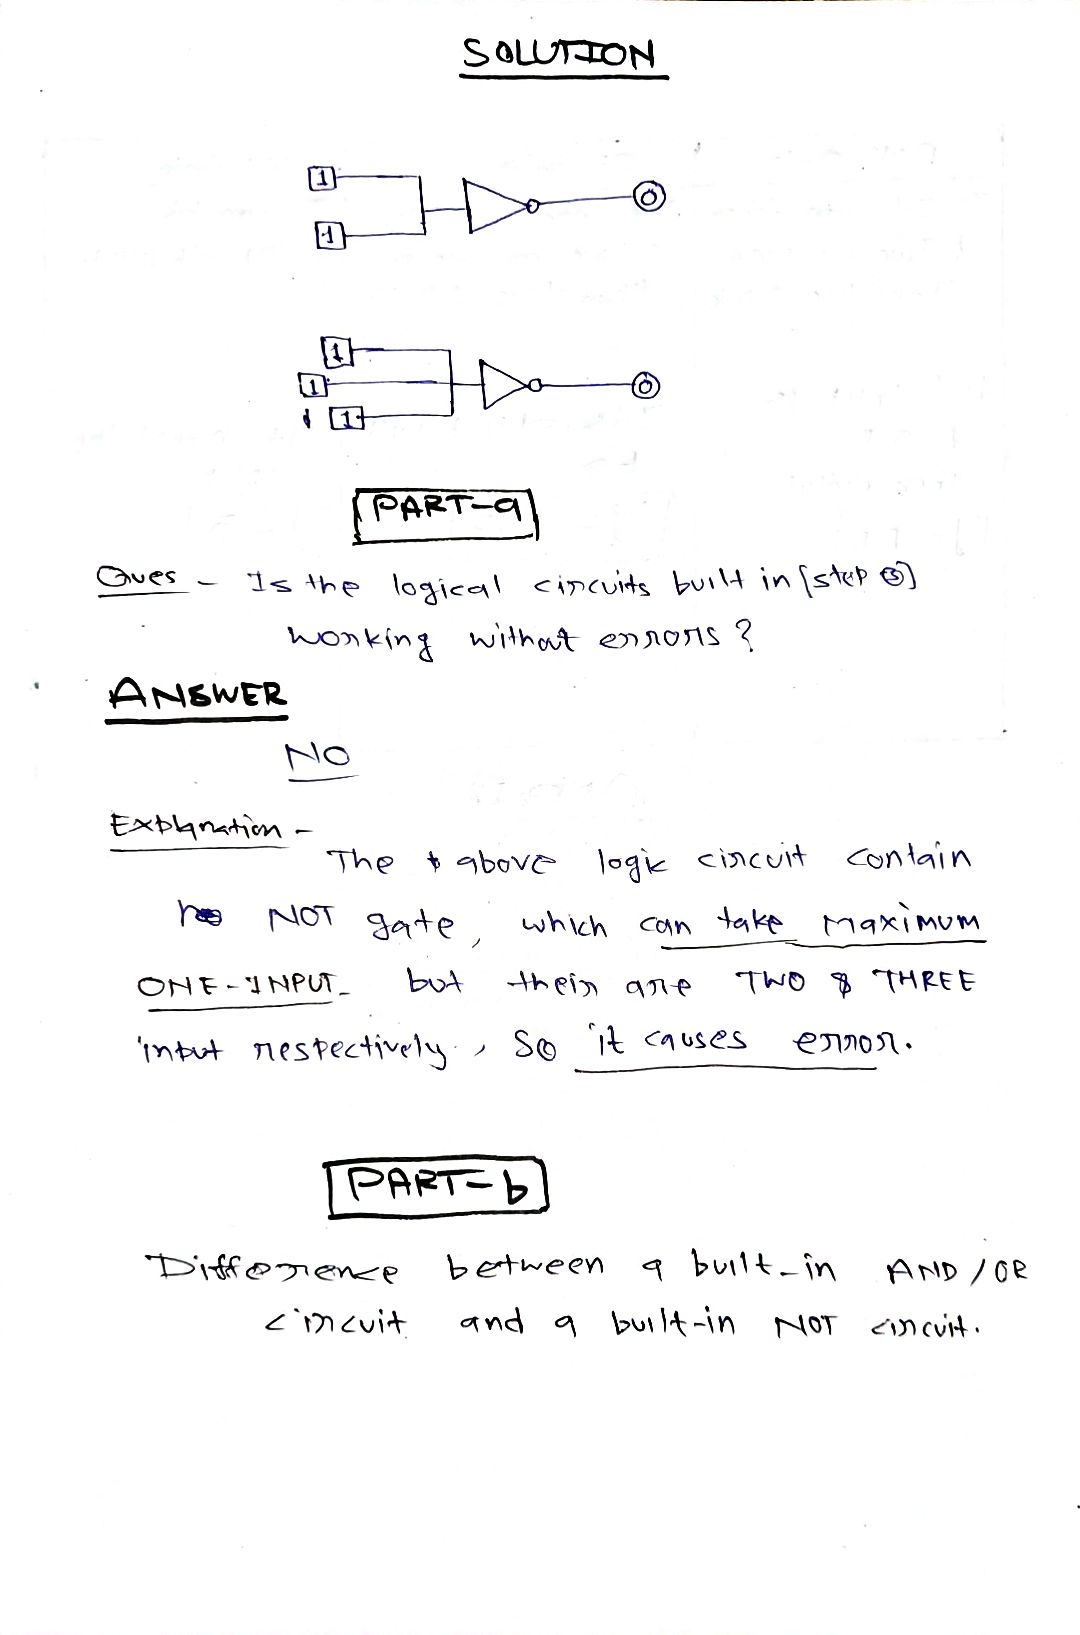 SOLUTION
1
1
0
1
1
1
0
PART-a
Ques - Is the logical circuits built in [step ③]
working without errors ?
ANSWER
NO
Explanation -
The above logic circuit contain
NOT gate, which can take maximum
ONE-INPUT but their are TWO & THREE
input respectively, So it causes error.
PART-b
Difference between a built-in AND/OR
circuit and a built-in NOT circuit.